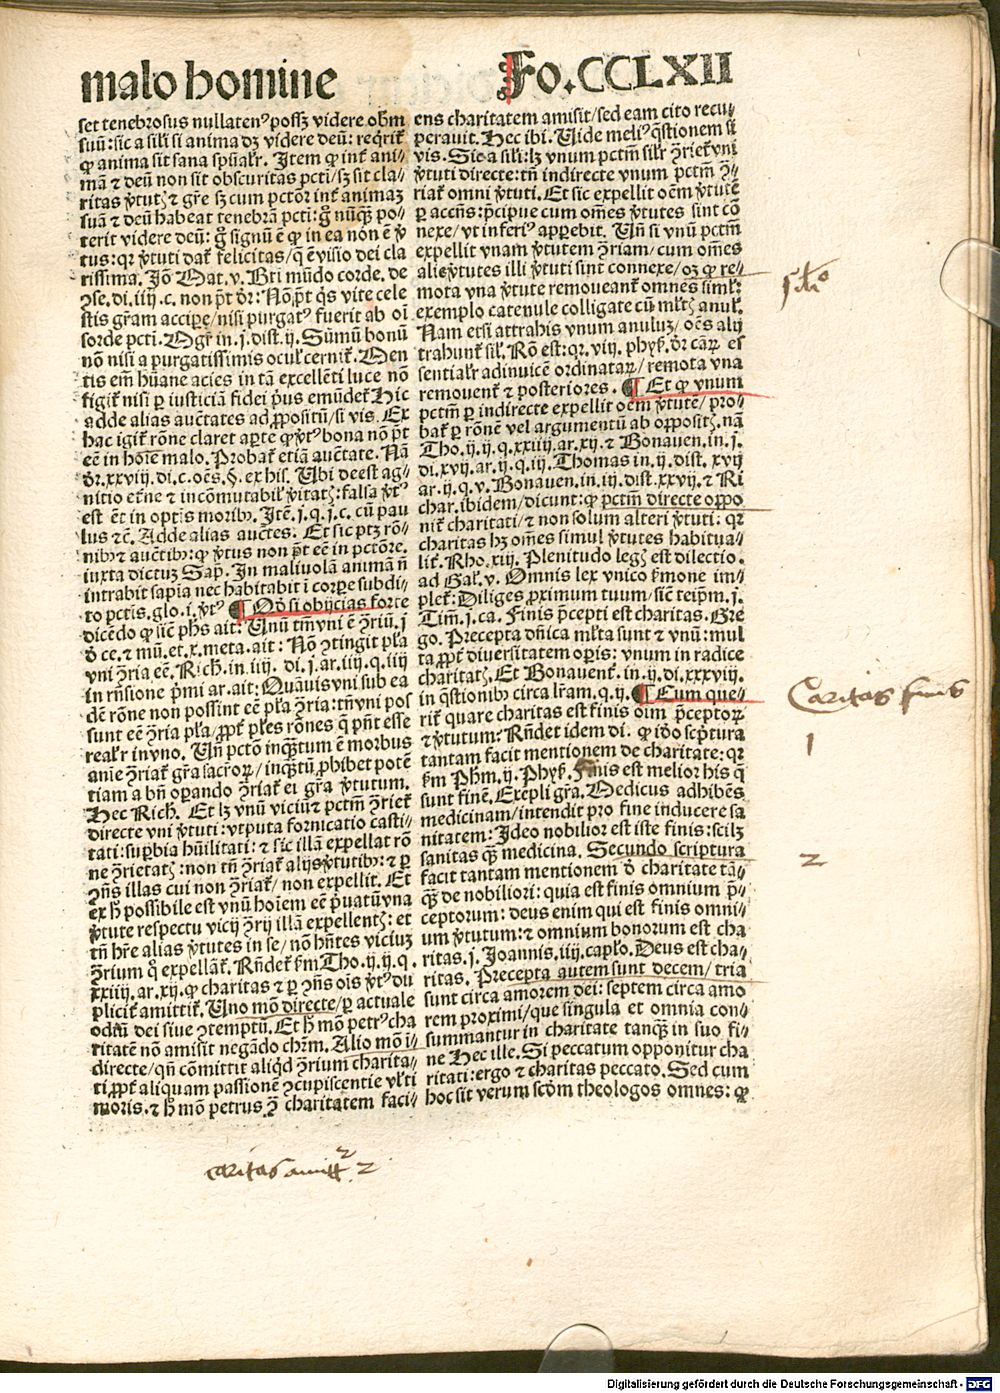 malo homine
Fo.CCLXII
set tenebrosus nullatenꝰ possꝫ videre obm̄
suū: sic a sil̓i si anima dꝫ videre deū: reqͥrit̃
ꝙ anima sit sana spūal̓r. Itē ꝙ int̓ ani⸗
mā ⁊ deū non sit obscuritas pcti/ sꝫ sit cla⸗
ritas v̓tutꝭ ⁊ gr̄e sꝫ cum pctōr int̓ animaꝫ
suā ⁊ deū habeat tenebrā pcti: gͦ nūqꝫ po⸗
terit videre deū: gͦ signū ē ꝙ in ea nō ē v̓
tus: qr v̓tuti dat̃ felicitas/ q̄ ē visio dei cla
rissima. Jō Mat. v. Bti mūdo corde. de
ꝯse. di. iiij. c. non pt̄ dr̄: Nō pt̄ qͥs vite cele
stis gr̄am accipe/ nisi purgatꝰ fuerit ab oī
sorde pcti. Mgr̄ in. j. dist. ij. Sūmū bonū
nō nisi a purgatissimis ocul̓ cernit̃. Men
tis em̄ hūane acies in tā excellēti luce nō
figit̃ nisi p iusticiā fidei pͥus emūdet̃ Hic
adde alias auc̄tates ad ꝓpositū/ si vis. Ex
hac igit̃ rōne claret apte ꝙ v̓tꝰ bona nō pt̄
eē in hoīe malo. Probat̃ etiā auc̄tate. Nā
dr̄. xxviij. di. c. oēs. §. ex his. Ubi deest ag⸗
nitio et̓ne ⁊ incōmutabil̓ v̓itatꝭ: falsa v̓tꝰ
est ēt in optīs moribꝫ. Itē. j. q. j. c. cū pau
lus ⁊c̄. Adde alias auc̄tes. Et sic ptꝫ rō⸗
nibꝫ ⁊ auc̄tibꝫ: ꝙ v̓tus non pt̄ eē in pctōre.
iuxta dictuꝫ Sap. In maliuolā animā n̄
intrabit sapīa nec habitabit ī corpe subdi⸗
to pctis. glo. i. v̓tꝰ ¶ Qd̓ si obijcias forte
dicēdo ꝙ sic̄ phs ait: Unū tm̄ vni ē ꝯ̄riū. j
d̓ ce. ⁊ mū. et. x. meta. ait: Nō ꝯtingit pl̓a
vni ꝯ̄ria eē. Rich. in. iiij. di. j. ar. iiij. q. iiij
in rn̄sione pͥmi ar. ait: Quāuis vni sub ea
dē rōne non possint eē pl̓a ꝯ̄ria: tn̄ vni pos
sunt eē ꝯ̄ria pl̓a/ ꝓpt̓ pl̓es rōnes q̄ pn̄t esse
real̓r in vno. Un̄ pctō inqꝫtum ē morbus
anie ꝯ̄riat̃ gr̄a sacr̄oꝝ/ inqꝫtū ꝓhibet potē
tiam a bn̄ opando ꝯ̄riat̃ ei gr̄a v̓tutum.
Hec Rich. Et lꝫ vnū viciū ⁊ pctm̄ ꝯ̄riet̃
directe vni v̓tuti: vtputa fornicatio casti⸗
tati: supbia hūilitati: ⁊ sic illā expellat rō
ne ꝯ̄rietatꝭ: non tn̄ ꝯ̄riat̃ alijs v̓tutibꝫ: ⁊ p
ꝯn̄s illas cui non ꝯ̄riat̃/ non expellit. Et
ex h̓ possibile est vnū hoīem eē pͥuatū vna
v̓tute respectu vicij ꝯ̄rij illā expellentꝭ: et
tn̄ hr̄e alias v̓tutes in se/ nō hn̄tes viciuꝫ
ꝯ̄rium qͦ expellāt̃. Rn̄det̃ ẜm Tho. ij. ij. q.
xxiiij. ar. xij. ꝙ charitas ⁊ p ꝯn̄s oīs v̓tꝰ du
plicit̓ amittit̃. Uno mō directe/ p actuale
odiū dei siue ꝯtemptū. Et h̓ mō petrꝰ cha
ritatē nō amisit negādo chr̄m. Alio mō ī⸗
directe/ qn̄ cōmittit aliqd̓ ꝯ̄rium charita⸗
ti ꝓpt̓ aliquam passionē ꝯcupiscentie vl̓ ti
moris. ⁊ h̓ mō petrus ꝯ̄ charitatem faci⸗
ens charitatem amisit/ sed eam cito recu⸗
perauit. Hec ibi. Vide meliꝰ q̄stionem si
vis. Sic a sil̓i: lꝫ vnum pctm̄ sil̓r ꝯ̄riet̃ vni
v̓tuti directe: tn̄ indirecte vnum pctm̄ ꝯ̄⸗
riat̃ omni v̓tuti. Et sic expellit oēm v̓tutē
p accn̄s: p̄cipue cum om̄es v̓tutes sint cō
nexe/ vt inferiꝰ apparebit. Un̄ si vnū pctm̄
expellit vnam v̓tutem ꝯ̄riam/ cum om̄es
alie v̓tutes illi v̓tuti sint connexe/ oꝫ ꝙ re⸗
mota vna v̓tute remoueant̃ omnes simul̓:
exemplo catenule colligate cū ml̓tꝭ anul̓.
Nam etsi attrahis vnum anuluꝫ/ oēs alij
trahunt̃ sil̓. Rō est: qr. viij. phyẜ. dr̄ cāꝝ es
sential̓r adinuicē ordinataꝝ/ remota vna
remouent̃ ⁊ posteriores. ¶ Et ꝙ vnum
pctm̄ p indirecte expellit oēm v̓tutē/ pro⸗
bat̃ p rōnē vel argumentū ab oppositꝭ. nā
Tho. ij. ij. q. xxiiij. ar. xij. ⁊ Bonauen. in. j.
di. xvij. ar. ij. q. iij. Thomas in. ij. dist. xvij
ar. ij. q. v. Bonauen. in. iij. dist. xxvij. ⁊ Ri
char. ibidem/ dicunt: ꝙ pctm̄ directe oppo
nit̃ charitati/ ⁊ non solum alteri v̓tuti: qr
charitas hꝫ om̄es simul v̓tutes habitua⸗
lit̓. Rho. xiij. Plenitudo legꝭ est dilectio.
ad Gal̓. v. Omnis lex vnico ẜmone im⸗
plet̃: Diliges ꝓximum tuum/ sic̄ teipm̄. j.
Tim̄. j. ca. Finis p̄cepti est charitas. Gre
go. Precepta dn̄ica ml̓ta sunt ⁊ vnū: mul
ta ꝓpt̓ diuersitatem opis: vnum in radice
charitatꝭ. Et Bonauent̓. in. ij. di. xxxviij.
in q̄stionibꝫ circa lr̄am. q. ij. ¶ Cum que⸗
rit̃ quare charitas est finis oīm p̄ceptoꝝ
⁊ v̓tutum: Rn̄det idem di. ꝙ iō sc̄ptura
tantam facit mentionem de charitate: qr
ẜm Phm̄. ij. Phyẜ. Finis est melior his q̄
sunt finē. Exēpli gr̄a. Medicus adhibēs
medicinam/ intendit pro fine inducere sa
nitatem: Ideo nobilior est iste finis: scilꝫ
sanitas qꝫ medicina. Secundo scriptura
facit tantam mentionem d̓ charitate tā⸗
qꝫ de nobiliori: quia est finis omnium p̄⸗
ceptorum: deus enim qui est finis omni⸗
um v̓tutum: ⁊ omnium bonorum est cha
ritas. j. Joannis. iiij. caplo. Deus est cha⸗
ritas. Precepta autem sunt decem/ tria
sunt circa amorem dei: septem circa amo
rem proximi/ que singula et omnia con⸗
summantur in charitate tanqꝫ in suo fi⸗
ne Hec ille. Si peccatum opponitur cha
ritati: ergo ⁊ charitas peccato. Sed cum
hoc sit verum scd̓m theologos omnes: ꝙ
Caritas finis
1
2
Digitalisierung gefördert durch die Deutsche Forschungsgemeinschaft - DFG